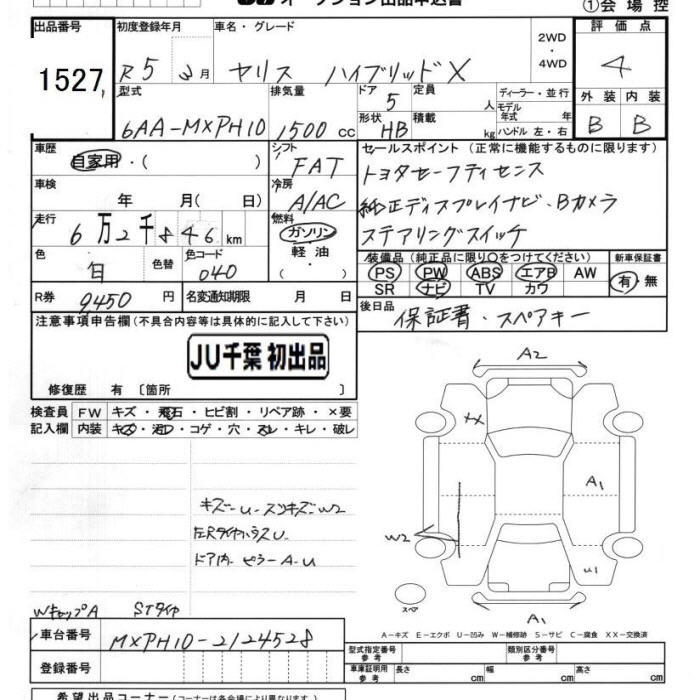 オークション出品申込書 ①会場控
出品番号 初度登録年月 車名・グレード 評価点
1527 R5 3月 ヤリス ハイブリッドX 2WD・4WD 4
型式 排気量 ドア 5 定員 人 ディーラー・並行 外装 内装
6AA-MXPH10 1500 cc 形状 HB 積載 kg モデル年式 年 ハンドル 左・右 B B
車歴 自家用・( ) シフト FAT セールスポイント (正常に機能するものに限ります)
トヨタセーフティセンス
車検 年 月( 日) 冷房 A/AC 純正ディスプレイナビ・Bカメラ
走行 6万2千846km 燃料 ガソリン・軽油・ ステアリングスイッチ
色 白 色替 色コード 040 装備品 (純正品に限り○をつけてください) 新車保証書
PS PW ABS エアB AW 有・無
SR ナビ TV カワ
R券 9450円 名変通知期限 月 日 後日品 保証書・スペアキー
注意事項申告欄 (不具合内容等は具体的に記入して下さい)
JU千葉 初出品
修復歴 有 〔箇所 〕
検査員 FW キズ・飛石・ヒビ割・リペア跡・×要
記入欄 内装 キズ・汚レ・コゲ・穴・スレ・キレ・破レ
A2
XX
A1
W2
U1
A1
スペア
キズ-U-スリキズ-W2
左Rタイヤハウス U
ドア内・ピラー A-U
WキャップA STタイヤ
A-キズ E-エクボ U-凹み W-補修跡 S-サビ C-腐食 XX-交換済
車台番号 MXPH10-2124528
型式指定番号 参考 類別区分番号 参考
登録番号 車庫証明用 参考 長さ cm 幅 cm 高さ cm
希望出品コーナー (コーナーは各会場により異なります)